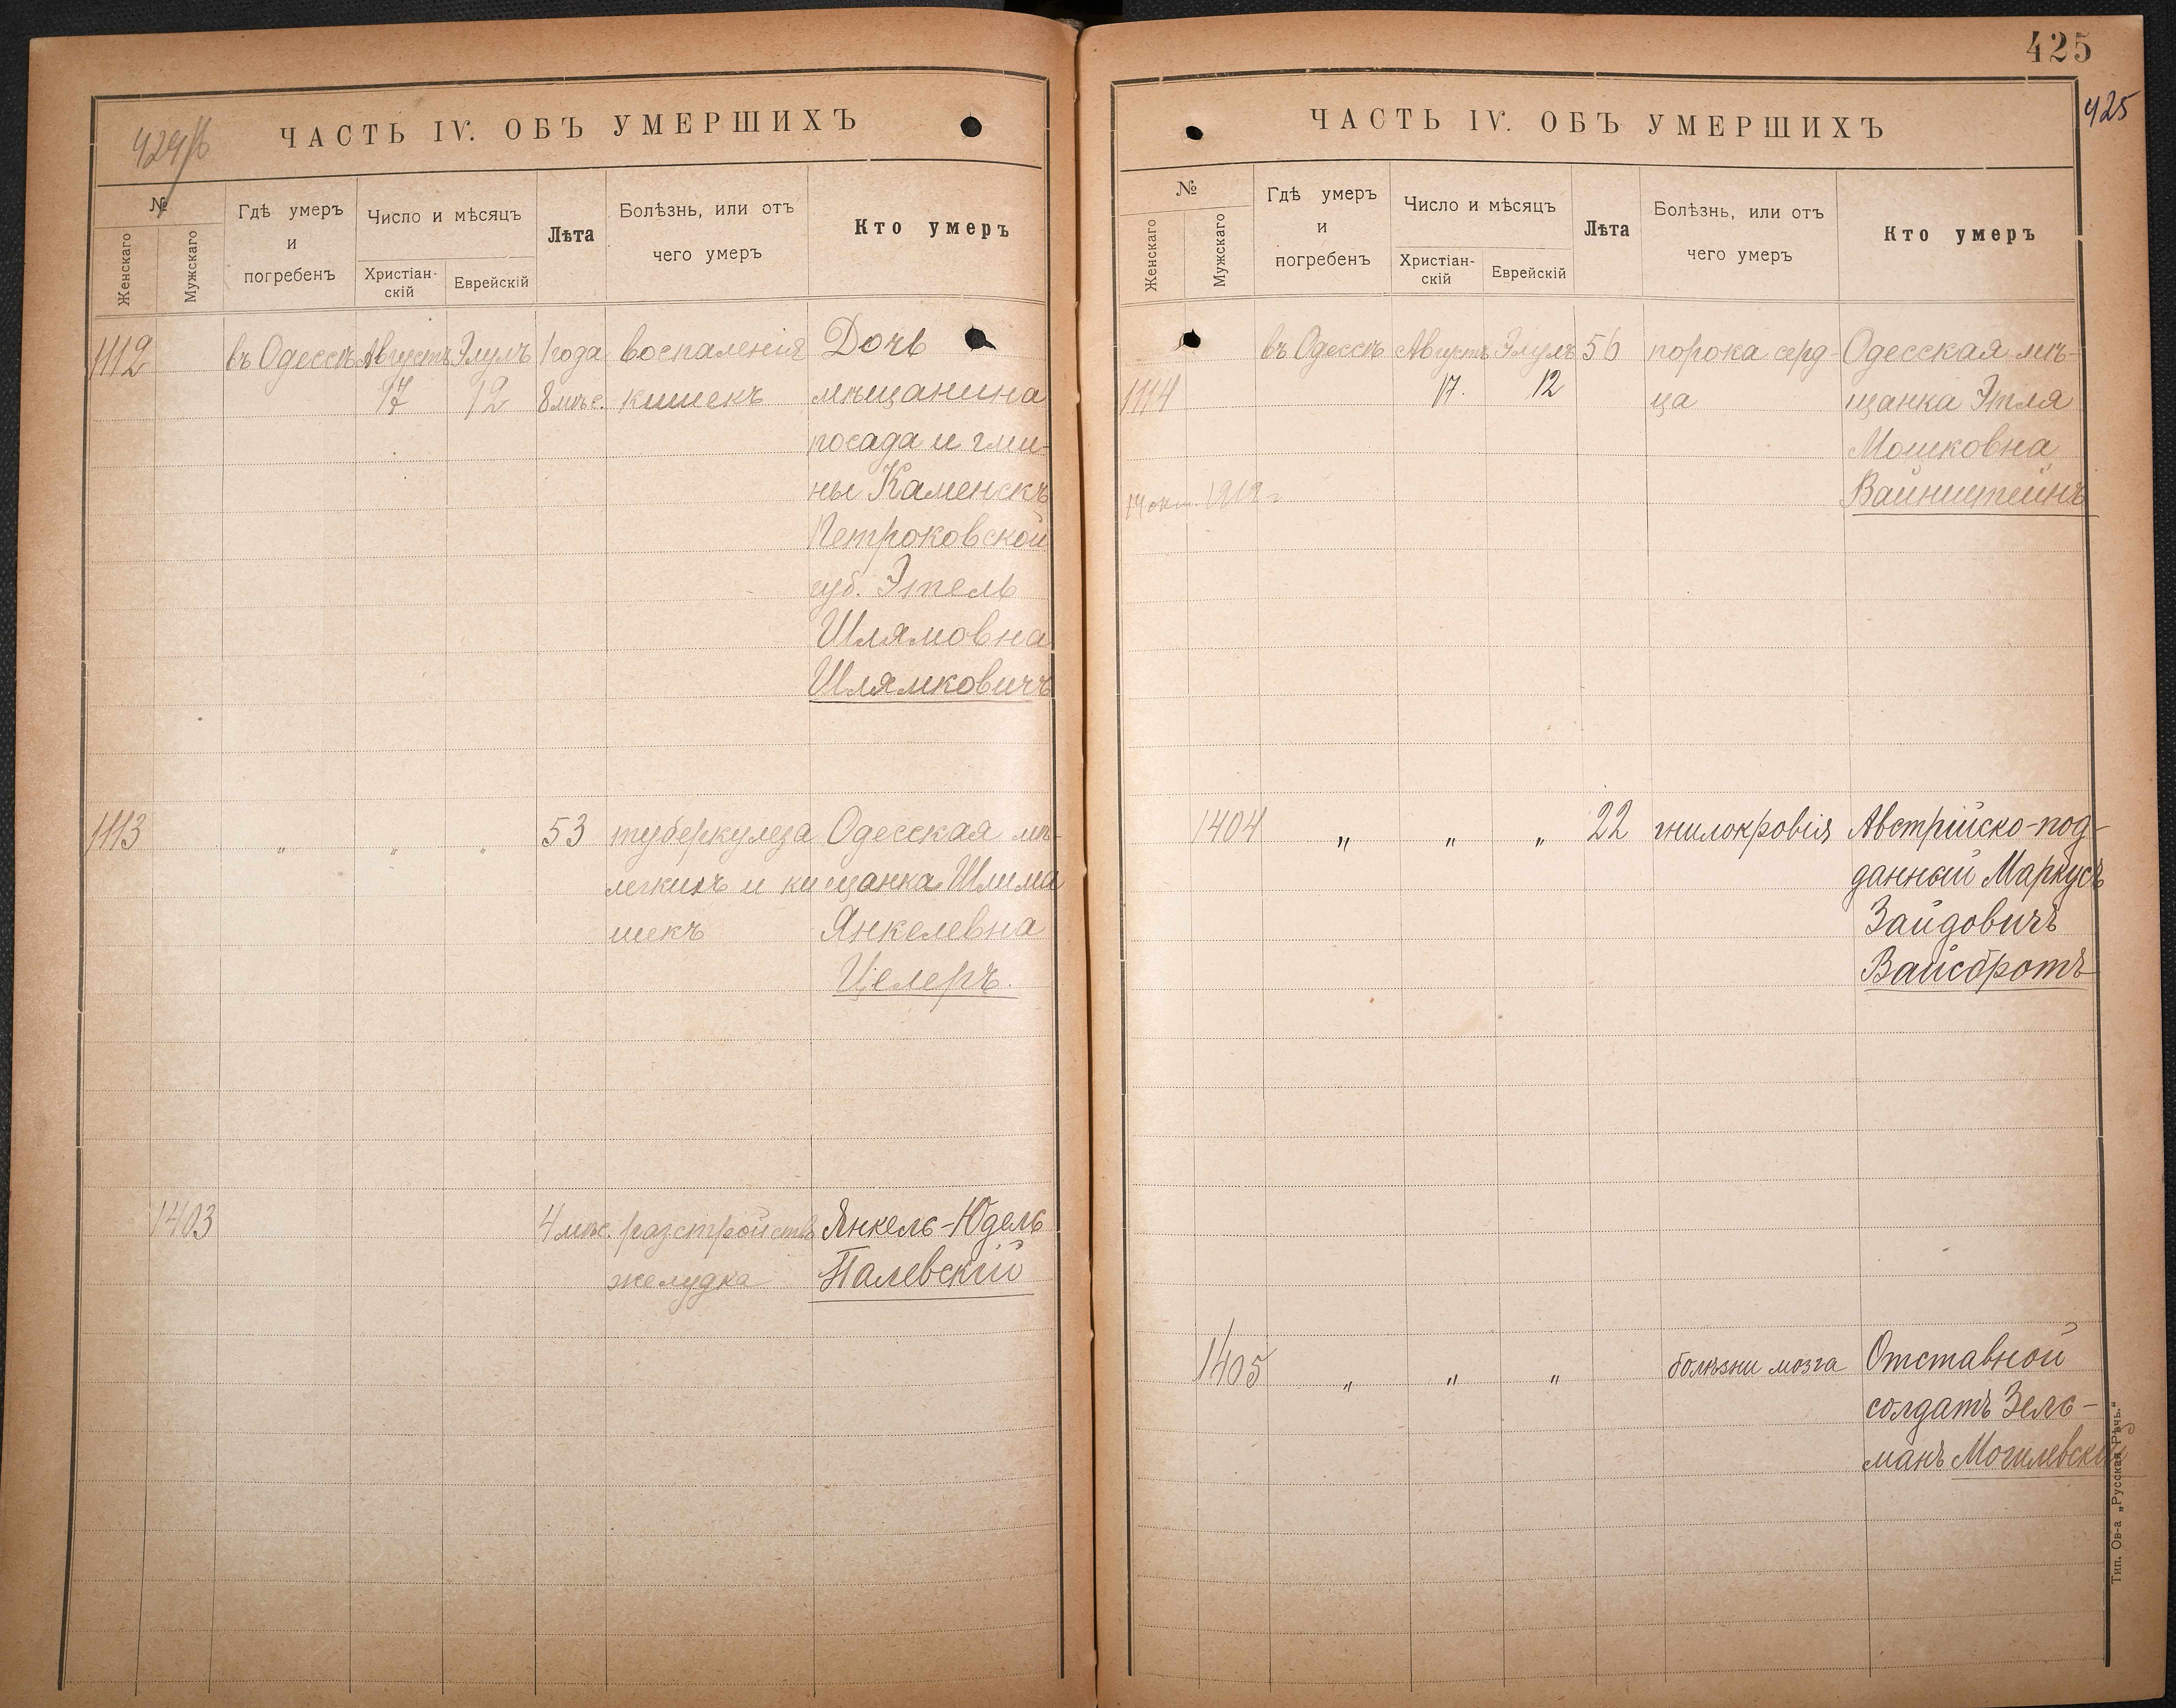 424/б
ЧАСТЬ IV. ОБЪ УМЕРШИХЪ
№
Женскаго
Мужскаго
Гдѣ умеръ
и
погребенъ
Число и мѣсяцъ
Христіан-
скій
Еврейскій
Лѣта
Болѣзнь, или отъ
чего умеръ
Кто умеръ
1112 въ Одессѣ Августъ Элулъ 1 года воспаленія Дочь
17 12 8 мѣс. кишекъ мѣщанина
посада и гми-
ны Каменскъ
Петроковской
губ. Этель
Шлямовна
Шлямковичъ
1113 „ „ „ 53 туберкулеза Одесская мѣ-
легкихъ и ки щанка Шлима
шекъ Янкелевна
Целеръ.
1403 4 мѣс. разстройства Янкель-Юдель
желудка Палевскій
425
425
ЧАСТЬ IV. ОБЪ УМЕРШИХЪ
№
Женскаго
Мужскаго
Гдѣ умеръ
и
погребенъ
Число и мѣсяцъ
Христіан-
скій
Еврейскій
Лѣта
Болѣзнь, или отъ
чего умеръ
Кто умеръ
въ Одессѣ Августъ Элулъ 56 порока серд- Одесская мѣ-
1114 17. 12 ца щанка Этля
Мошковна
Вайнштейнъ
1404 „ „ „ 22 гнилокровія Австрійско-под-
данный Маркусъ
Зайдовичъ
Вайсбротъ
1405 „ „ „ болѣзни мозга Отставной
солдатъ Зель-
манъ Могилевскій
Тип. Ов-а „Русская Рѣчь.“